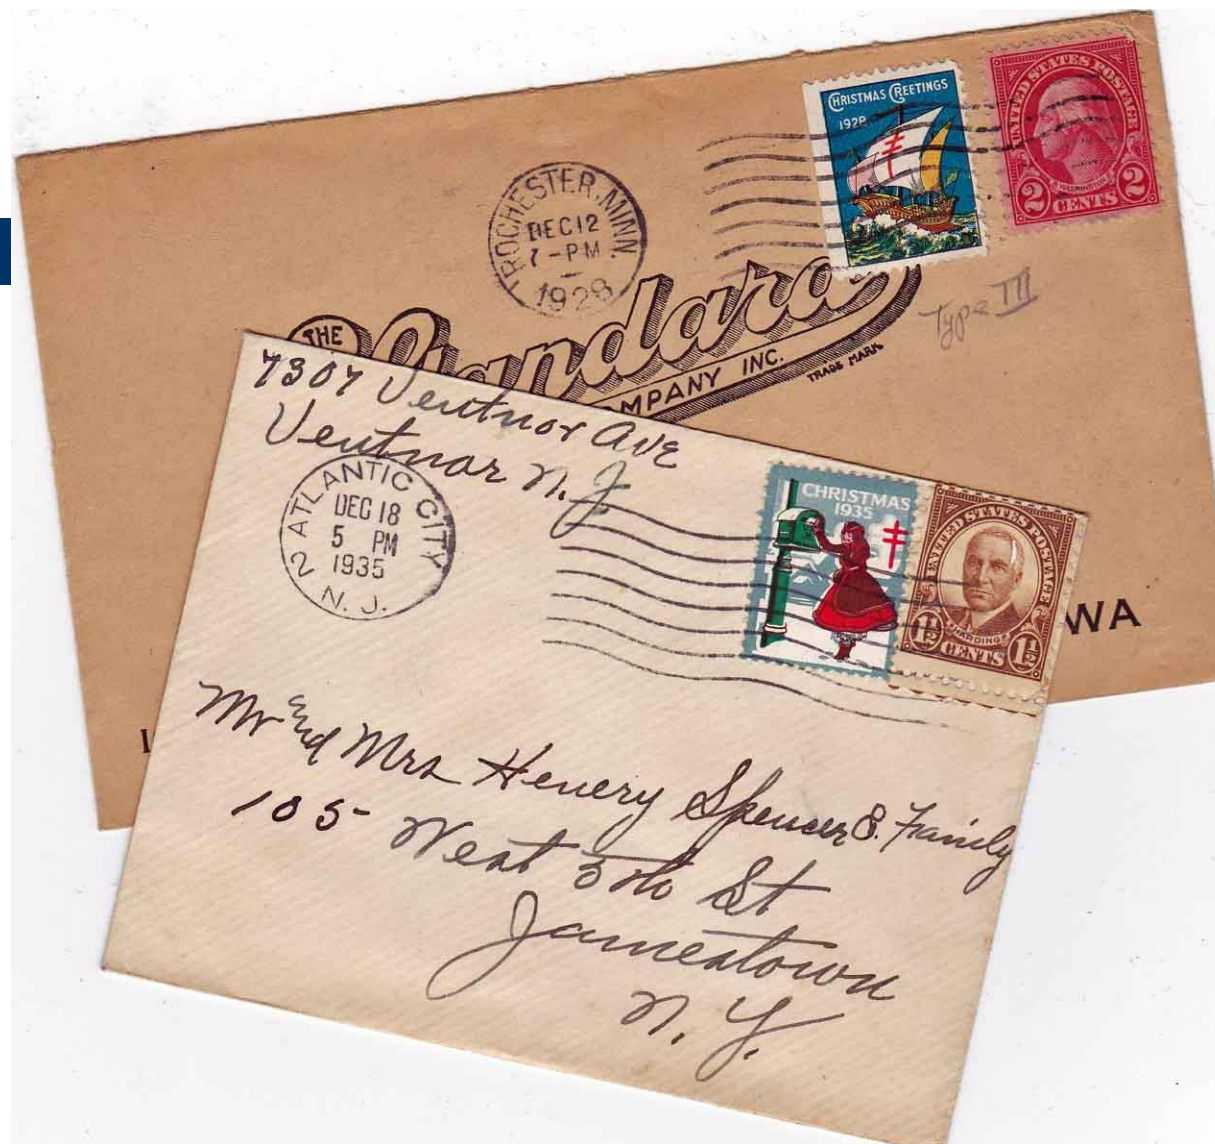 CHRISTMAS GREETINGS
1928
UNITED STATES POSTAGE
WASHINGTON
2 CENTS 2
ROCHESTER, MINN.
DEC 12
7 - PM
1928
Type III
THE
Standard
COMPANY INC.
TRADE MARK
WA
7307 Ventnor Ave
Ventnor N. J.
2 ATLANTIC CITY
DEC 18
5 PM
1935
N. J.
CHRISTMAS
1935
UNITED STATES POSTAGE
HARDING
1½ CENTS 1½
Mr and Mrs Henery Spencer & Family
105 West 5th St
Jamestown
N. Y.